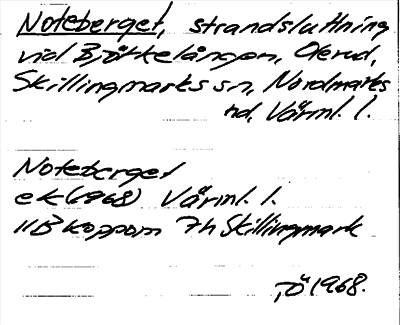 Noteberget, strandsluttning
vid Björkelången, Olerud,
Skillingmarks sn, Nordmarks
hd, Värml. l.
Noteberget
ek (1968) Värml. l.
11B Koppom 7h Skillingmark
TÖ 1968.